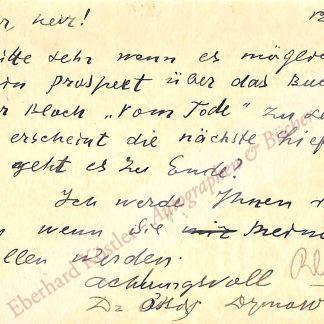 r, herr!
itte sehr wenn es möglic
in prospekt über das Buc
r Bloch „Vom Tode" zu se
erscheint die nächste Lief
geht es zu Ende?
Ich werde Ihnen
n wenn Sie meine
llen werden.
achtungsvoll
Dr
Eberhard Köstler Autographen & Bücher